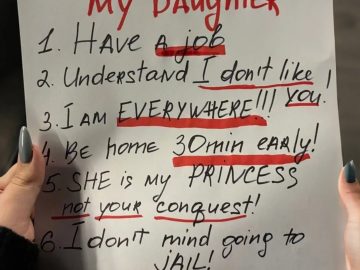 My Daughter
1. Have a job
2. Understand I don't like
you.
3. I am EVERYWHERE!!!
4. Be home 30min early!
5. SHE is my PRINCESS
not your conquest!
6. I don't mind going to
JAIL!